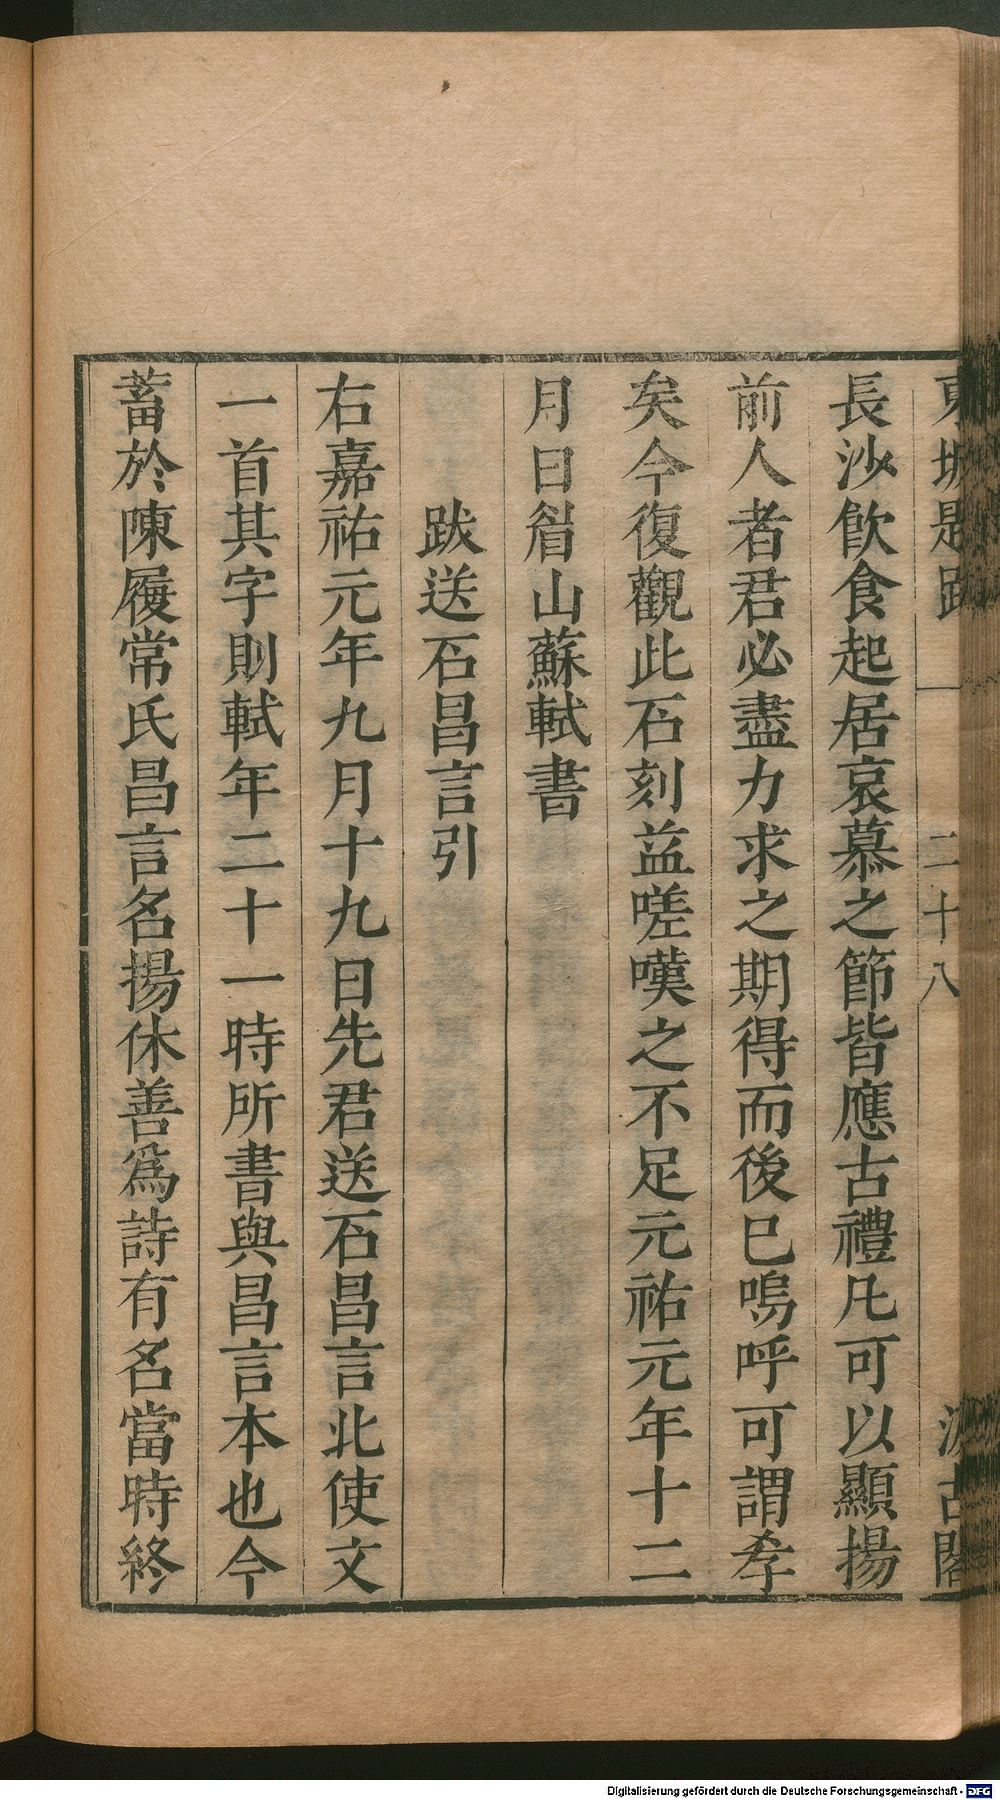 東坡題跋 一 二十八 汲古閣
長沙飮食起居哀慕之節皆應古禮凡可以顯揚
前人者君必盡力求之期得而後已嗚呼可謂孝
矣今復觀此石刻益嗟嘆之不足元祐元年十二
月日眉山蘇軾書
跋送石昌言引
右嘉祐元年九月十九日先君送石昌言北使文
一首其字則軾年二十一時所書與昌言本也今
蓄於陳履常氏昌言名揚休善爲詩有名當時終
Digitalisierung gefördert durch die Deutsche Forschungsgemeinschaft - DFG